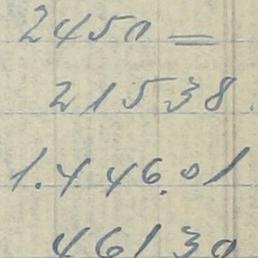 2450 =
215 38.
1.446.01
461 30